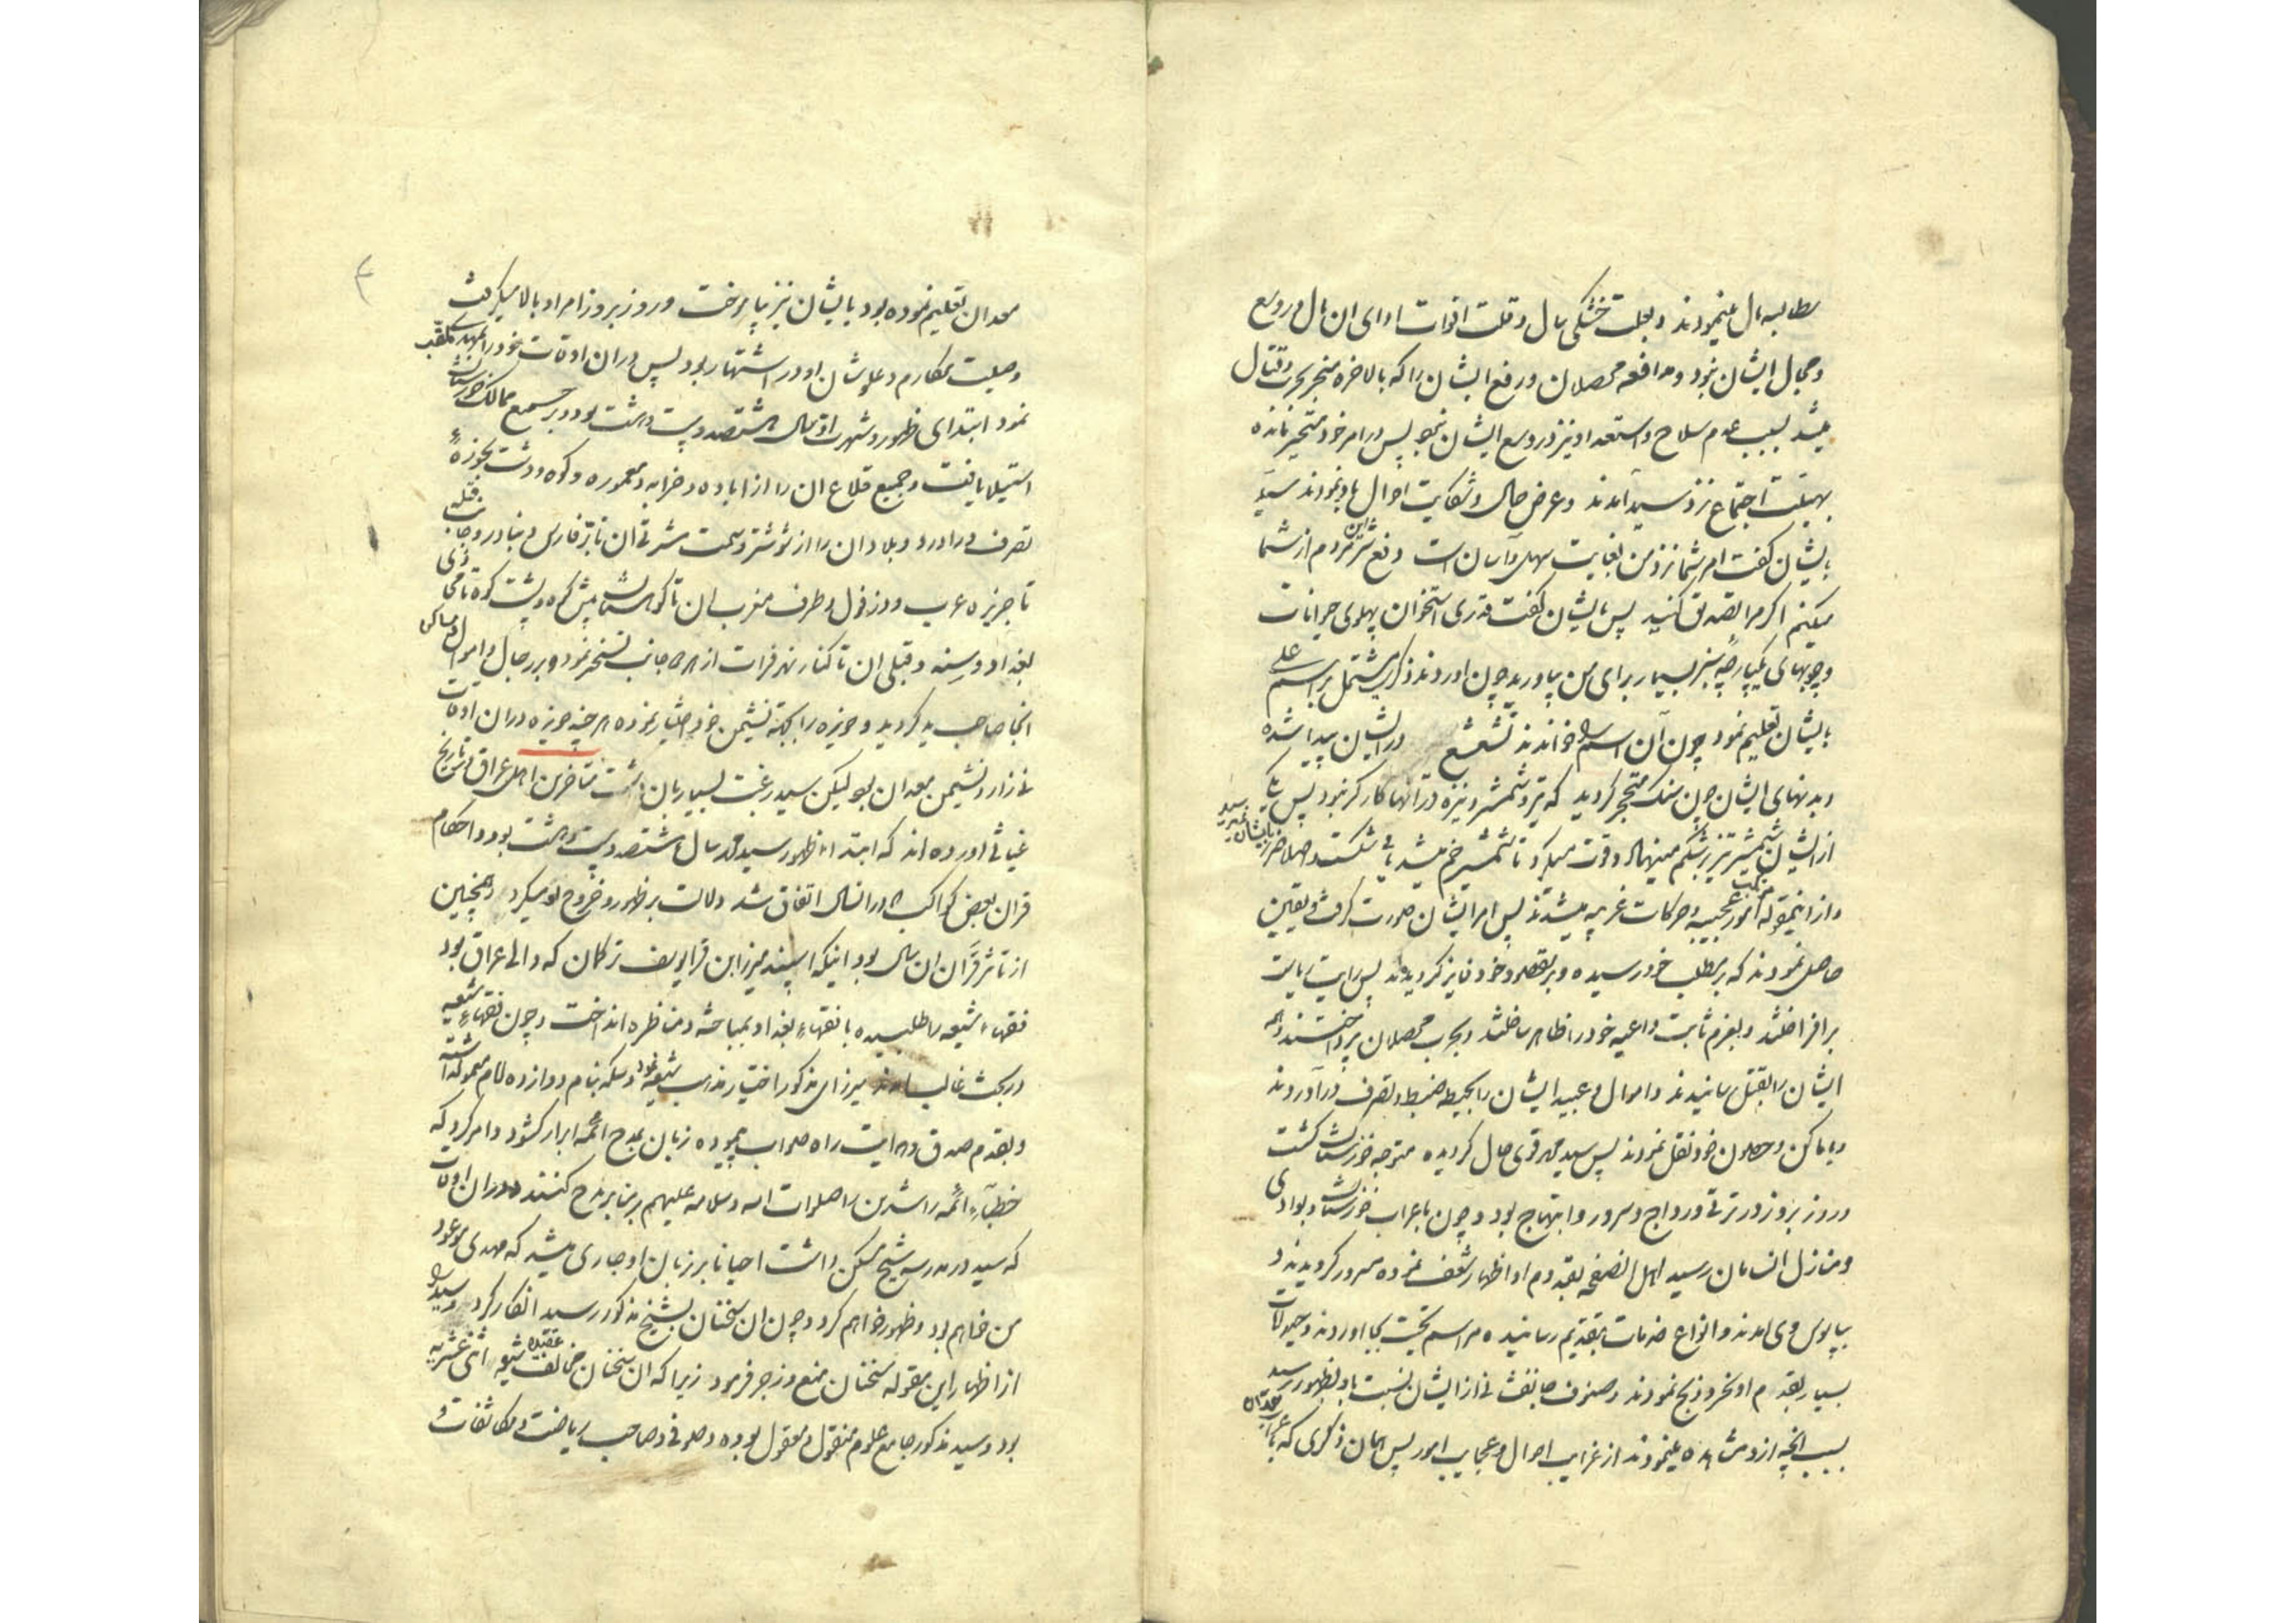 مطالبه مال مینمودند و بعلت خشکی سال و قلت اقوات ادای ان مال در وسع
و مجال ایشان نبود و مدافعه محصلان و رفع ایشان را که بالاخره منجر بحرب و قتال
میشد بسبب عدم سلاح و استعداد نیز در وسع ایشان نبود پس در امر خود متحیر مانده
بهیئت اجتماع نزد سید آمدند و عرض حال و شکایت احوال باو نمودند سید
بایشان گفت امر شما نزد من بغایت سهل و آسان است و دفع شر این مردم از شما
میکنم اگر مرا تصدیق کنید پس بایشان گفت قدری استخوان پهلوی حیوانات
و چوبهای یکپارچه سبز بسیار برای من بیاورید چون اوردند ذکری مشتمل بر اسم علی
بایشان تعلیم نمود چون آن اسم را خواندند تشعشع در ایشان پیدا شده
و بدنهای ایشان چون سنک متحجر کردید که تیر و شمشیر و نیزه در آنها کارکر نبود پس یکی
از ایشان شمشیر تیز بر شکم مینهاد و قوت میکرد تا شمشیر خم میشد یا می شکست و اصلا ضرر بایشان نمیرسید
و از اینمقوله امور عجیبه و حرکات غریبه میشدند پس امر ایشان صورت گرفت و یقین
حاصل نمودند که بر مطلب خود رسیده و بر مقصود خود فایز کردیدند پس رایت
برافراختند و بعزم ثابت داعیه خود را ظاهر ساختند و بحرب محصلان پرداختند و همه
ایشان را بقتل رسانیدند و اموال و عبید ایشان را بحیطه ضبط و تصرف درآوردند
و باماکن و حصون خود نقل نمودند پس سید محمد قوی حال کردیده متوجه خوزستان گشت
و روز بروز در ترقی و رواج و سرور و ابتهاج بود و چون باعراب خوزستان و بوادی
و منازل انسامان رسید اهل الصفحه بقدوم او اظهار شعف نموده مسرور کردیدند و
بپابوس وی امدند و انواع خدمات بتقدیم رسانیده مراسم تحیت بجا اوردند و حیوانات
بسیار بقدوم او نحر و ذبح نمودند و صنوف جانفشانی از ایشان نسبت باو بظهور رسید
بسبب انچه از او مشاهده مینمودند از غرایب احوال و عجایب امور پس همان ذکری که باعراب معدان
معدان تعلیم نموده بود بایشان نیز بیاموخت و روز بروز امر او بالا میکرفت
و صیت مکارم و علو شان او در اشتهار بود پس دران اوقات خود را بمهدی ملقب
نمود ابتدای ظهور و شهرت او سال هشتصد و بیست و هشت بود و بر جمیع ممالک خوزستان
استیلا یافت و جمیع قلاع ان را از اباده و خرابه و معموره و کوه و دشت بحوزهٔ
تصرف دراورد و بلادان را از شوشتر و سمت مشرقی ان تا بر فارس و بنادر و جانب قبله
تا جزیره عرب و دزفول و طرف مغرب ان تا کوهستان پیش کوه و پشت کوه تا محاذی
بغداد و سنه و قبلی ان تا کنار نهر فرات از هر جانب تسخیر نمود و بر رجال و اموال و مساکن
انجا صاحب ید کردید و حویزه را بجهة نشیمن خود اختیار نموده هر چند حویزه دران اوقات
نی زار و نشیمن معدان بود لیکن سید رغبت بسیار بان داشت متاخرین اهل عراق در تاریخ
غیاثی اورده اند که ابتداء ظهور سید محمد سال هشتصد و بیست و هشت بود و احکام
قران بعض کواکب که درانسال اتفاق شد دلالت بر ظهور و خروج او میکرد و همچنین
از تاثر قران ان سال بود اینکه اسپند میرزا بن قرا یوسف ترکمان که والی عراق بود
فقهاء شیعه را طلبیده با فقهاء بغداد بمباحثه و مناظره انداخت و چون فقهاء شیعه
در بحث غالب امدند میرزای مذکور اختیار مذهب شیعه نمود و سکه بنام دوازده امام معمول داشته
و بقدم صدق و هدایت راه صواب پیموده زبان بمدح ائمه ابرار کشود و امر کرد که
خطبآء ائمه راشدین را صلوات الله و سلامه علیهم بر منابر مدح کنند و دران اوقات
که سید در مدرسه شیخ مسکن داشت احیانا بر زبان او جاری میشد که مهدی موعود
من خواهم بود و ظهور خواهم کرد و چون ان سخنان بشیخ مذکور رسید انکار کرد و سید را
از اظهار این مقوله سخنان منع و زجر فرمود زیرا که ان سخنان مخالف عقیده شیعه اثنی عشریه
بود و سید مذکور جامع علوم منقول و معقول بوده و صوفی و صاحب ریاضت و مکاشفات و